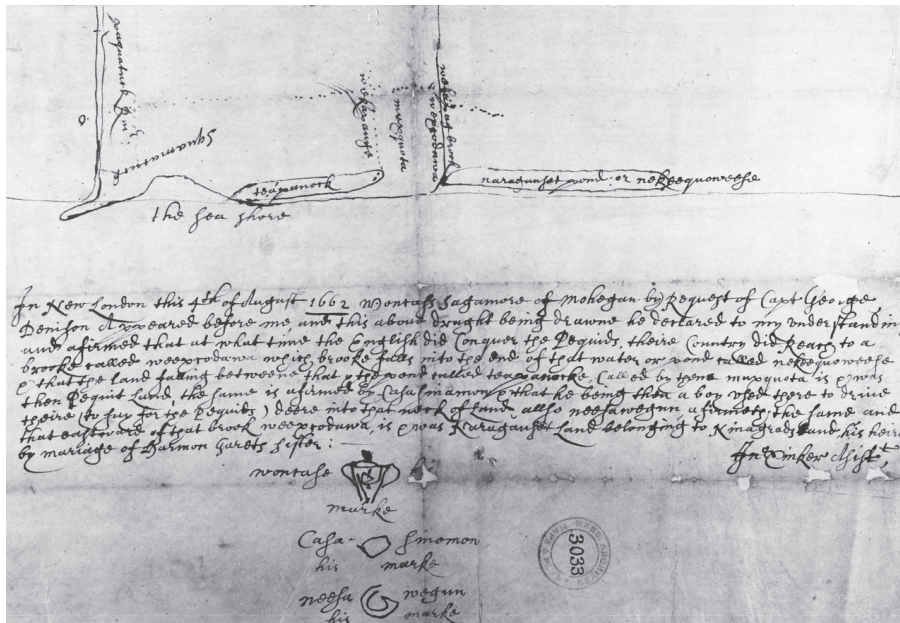 paquatuck
Squamatuck
wekapauge
muxquota
wekapaug brook
weexcodawa
teapanock
naraganset pond: or nekeequoweese
the sea shore
In New London this 4th of August 1662 Wontass Sagamore of Mohegan by Request of Capt George
Denison Appeared before me, and this above draught being drawne he declared to my understandin
and afirmed that at what time the English did Conquer the Pequids, theire Country did Reach to a
brooke called weexcodawa which brooke falls into the end of that water or pond called nekeequoweese
that the Land falling betweene that & the pond called teapanocke, Called by them muxquota is & was
then Pequit Land, the same is afirmed by Casasinamon & that he being then a boy used there to drive
theire (to say for the Pequids) deere into that neck of land allso neesawegun afirmeth the same and
that eastward of that brook weexcodawa, is & was Naraganset Land belonging to Ninagrads and his heirs
by marriage of Harmon Garets sister:
Tinker Assist
wontase
marke
Casa- Sinomon
his marke
neesa wegun
his marke
3033